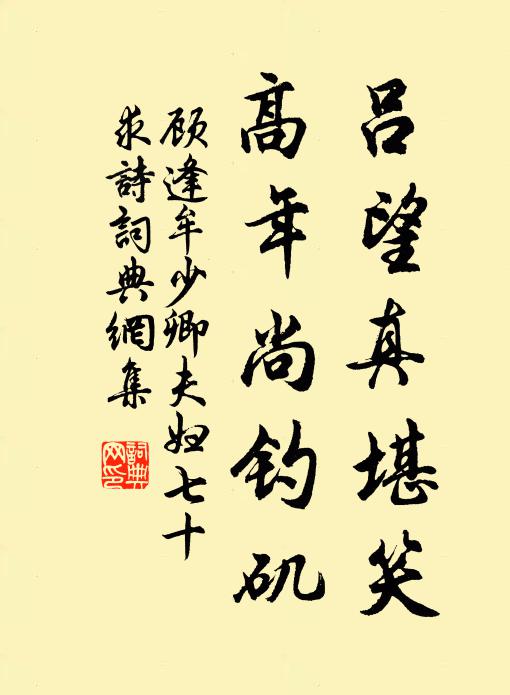 吕望真堪笑
高年尚钓矶
顾逢牟少卿夫妇七十
求詩詞典網集
詞典网印